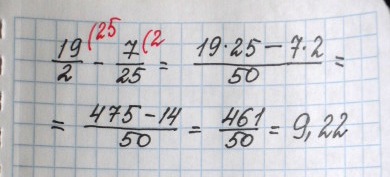 19/2 (25 - 7/25 (2 = (19·25 - 7·2)/50 =
= (475 - 14)/50 = 461/50 = 9,22